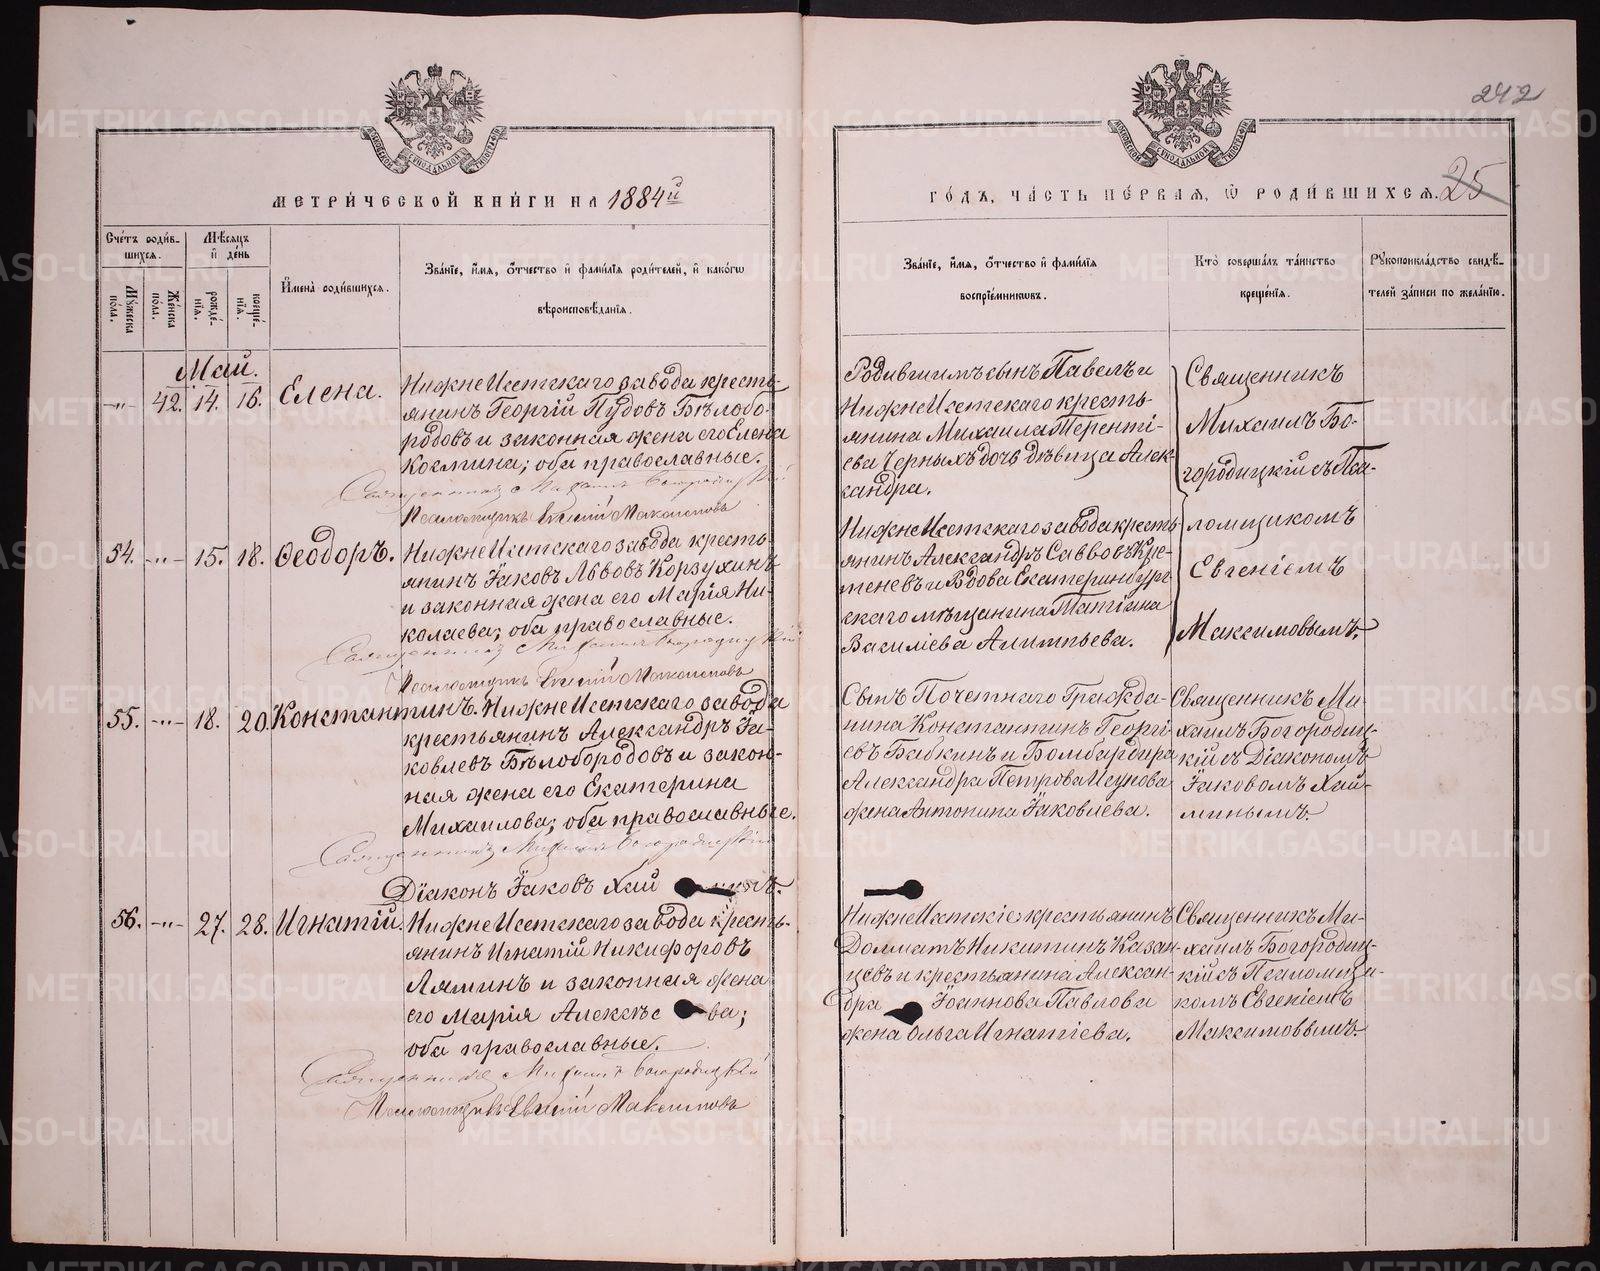 242
МЕТРИ́ЧЕСКОЙ КНИ́ГИ НА 1884й
ГО́ДЪ, ЧА́СТЬ ПЕ́РВАЯ, Ѡ РОДИ́ВШИХСЯ. 25
Сче́тъ роди́в-
шихся.
Мѣ́сяцъ
и҆ де́нь
Му́жеска
по́ла.
Же́нска
по́ла.
рожде́-
нїя.
креще́-
нїя.
И҆мена̀ роди́вшихся.
Зва́нїе, и҆́мя, ѻ҆́тчество и҆ фами́лїя роди́телей, и҆ како́гѡ
вѣроисповѣ́данїя.
Зва́нїе, и҆́мя, ѻ҆́тчество и҆ фами́лїя
воспрїе́мникѡвъ.
Кто̀ соверша́лъ та́инство
креще́нїя.
Рꙋкоприкла́дство свидѣ́-
телей за́писи по жела́нїю.
Май.
-"- 42. 14. 16. Елена.
НижнеИсетскаго завода кресть-
янинъ Георгій Пудовъ Бѣлобо-
родовъ и законная жена его Елена
Космина; оба православные.
Священникъ Михаилъ Богородицкій
Псаломщикъ Евгеній Максимовъ
Родившимъ сынъ Павелъ и
НижнеИсетскаго кресть-
янина Михаила Теренті-
ева Черныхъ дочь дѣвица Алек-
сандра.
Священникъ
Михаилъ Бо-
городицкій съ Пса-
ломщикомъ
Евгеніемъ
Максимовымъ.
54. -"- 15. 18. Ѳеодоръ.
НижнеИсетскаго завода кресть-
янинъ Іаковъ Львовъ Корзухинъ
и законная жена его Марія Ни-
колаева; оба православные.
Священникъ Михаилъ Богородицкій
Псаломщикъ Евгеній Максимовъ
НижнеИсетскаго завода кресть-
янинъ Александръ Саввовъ Кре-
теневъ и Вдова Екатеринбург-
скаго мѣщанина Татіана
Василіева Алимпьева.
55. -"- 18. 20. Константинъ.
НижнеИсетскаго завода
крестьянинъ Александръ Іа-
ковлевъ Бѣлобородовъ и закон-
ная жена его Екатерина
Михаилова; оба православные.
Священникъ Михаилъ Богородицкій
Діаконъ Іаковъ Хай
Сынъ Почетнаго Гражда-
нина Константинъ Георгі-
евъ Бабкинъ и Бомбардира
Александра Петрова Исунова
жена Антонина Іаковлева.
Священникъ Ми-
хаилъ Богородиц-
кій съ Діакономъ
Іаковомъ Хай-
минымъ.
56. -"- 27. 28. Игнатій.
НижнеИсетскаго завода кресть-
янинъ Игнатій Никифоровъ
Ляминъ и законная жена
его Марія Алексѣе ва;
оба православные.
Священникъ Михаилъ Богородицкій
Псаломщикъ Евгеній Максимовъ
НижнеИсетскіе крестьянинъ
Долматъ Никитинъ Казан-
цевъ и крестьянина Алексан-
дра Іоаннова Павлова
жена Ольга Игнатіева.
Священникъ Ми-
хаилъ Богородиц-
кій съ Псаломщи-
комъ Евгеніемъ
Максимовымъ.
METRIKI.GASO-URAL.RU